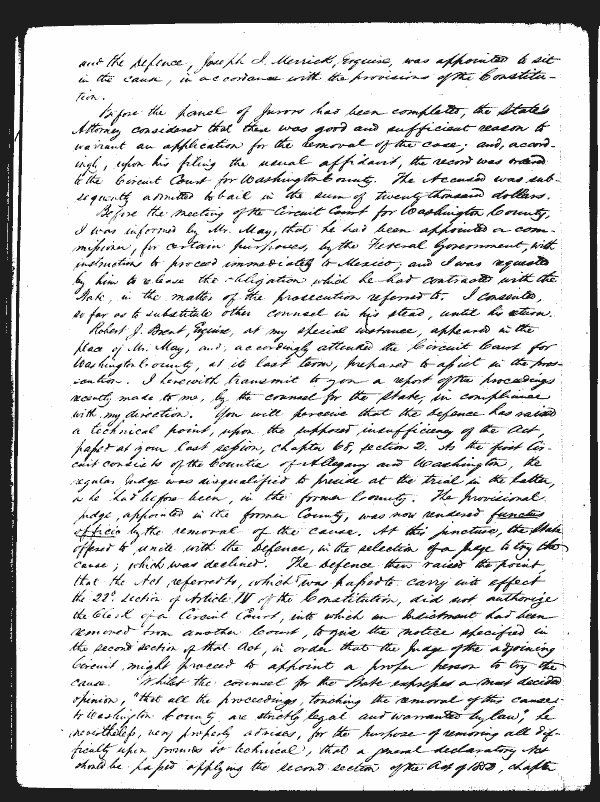 and the defence, Joseph I. Merrick, Esquire, was appointed to sit
in the cause, in accordance with the provisions of the Constitu-
tion.
Before the panel of Jurors had been completed, the State's
Attorney considered that there was good and sufficient reason to
warrant an application for the removal of the case; and, accord-
ingly, upon his filing the usual affidavit, the record was
to the Circuit Court for Washington County. The Accused was sub-
sequently admitted to bail in the sum of twenty thousand dollars.
Before the meeting of the Circuit Court for Washington County,
I was informed by Mr. May, that he had been appointed a com-
missioner, for certain purposes, by the Federal Government, with
instruction to proceed immediately to Mexico; and I was requested
by him to release the obligation which he had contracted with the
State, in the matter of the prosecution referred to. I consented,
so far as to substitute other counsel in his stead, until his return.
Robert J. Brent, Esquire, at my special instance, appeared in the
place of Mr. May, and, accordingly attended the Circuit Court for
Washington County, at its last term, prepared to assist in the pros-
ecution. I herewith transmit to you a report of the proceedings
recently made to me, by the counsel for the State, in compliance
with my direction. You will perceive that the defence has raised
a technical point, upon the supposed insufficiency of the Act,
passed at your last session, chapter 68, section 2. As the first Cir-
cuit consists of the Counties of Allegany and Washington, the
regular Judge was disqualified to preside at the trial in the latter,
as he had before been, in the former County. The provisional
judge, appointed in the former County, was now rendered functus
officio by the removal of the cause. At this juncture, the State
offered to unite with the Defence, in the selection of a Judge to try the
cause; which was declined. The defence then raised the point
that the Act referred to, which was passed to carry into effect
the 22d. section of Article IV of the Constitution, did not authorize
the Clerk of a Circuit Court, into which an Indictment had been
removed from another Court, to give the notice specified in
the second section of that Act, in order that the Judge of the adjoining
Circuit, might proceed to appoint a proper person to try the
cause. Whilst the counsel for the State expresses a most decided
opinion, "that all the proceedings, touching the removal of this cause
to Washington County are strictly legal and warranted by law," he
nevertheless, very properly advises, for the purpose of removing all dif-
ficulty upon grounds so technical, that a general declaratory Act
should be passed applying the second section of the Act of chapter